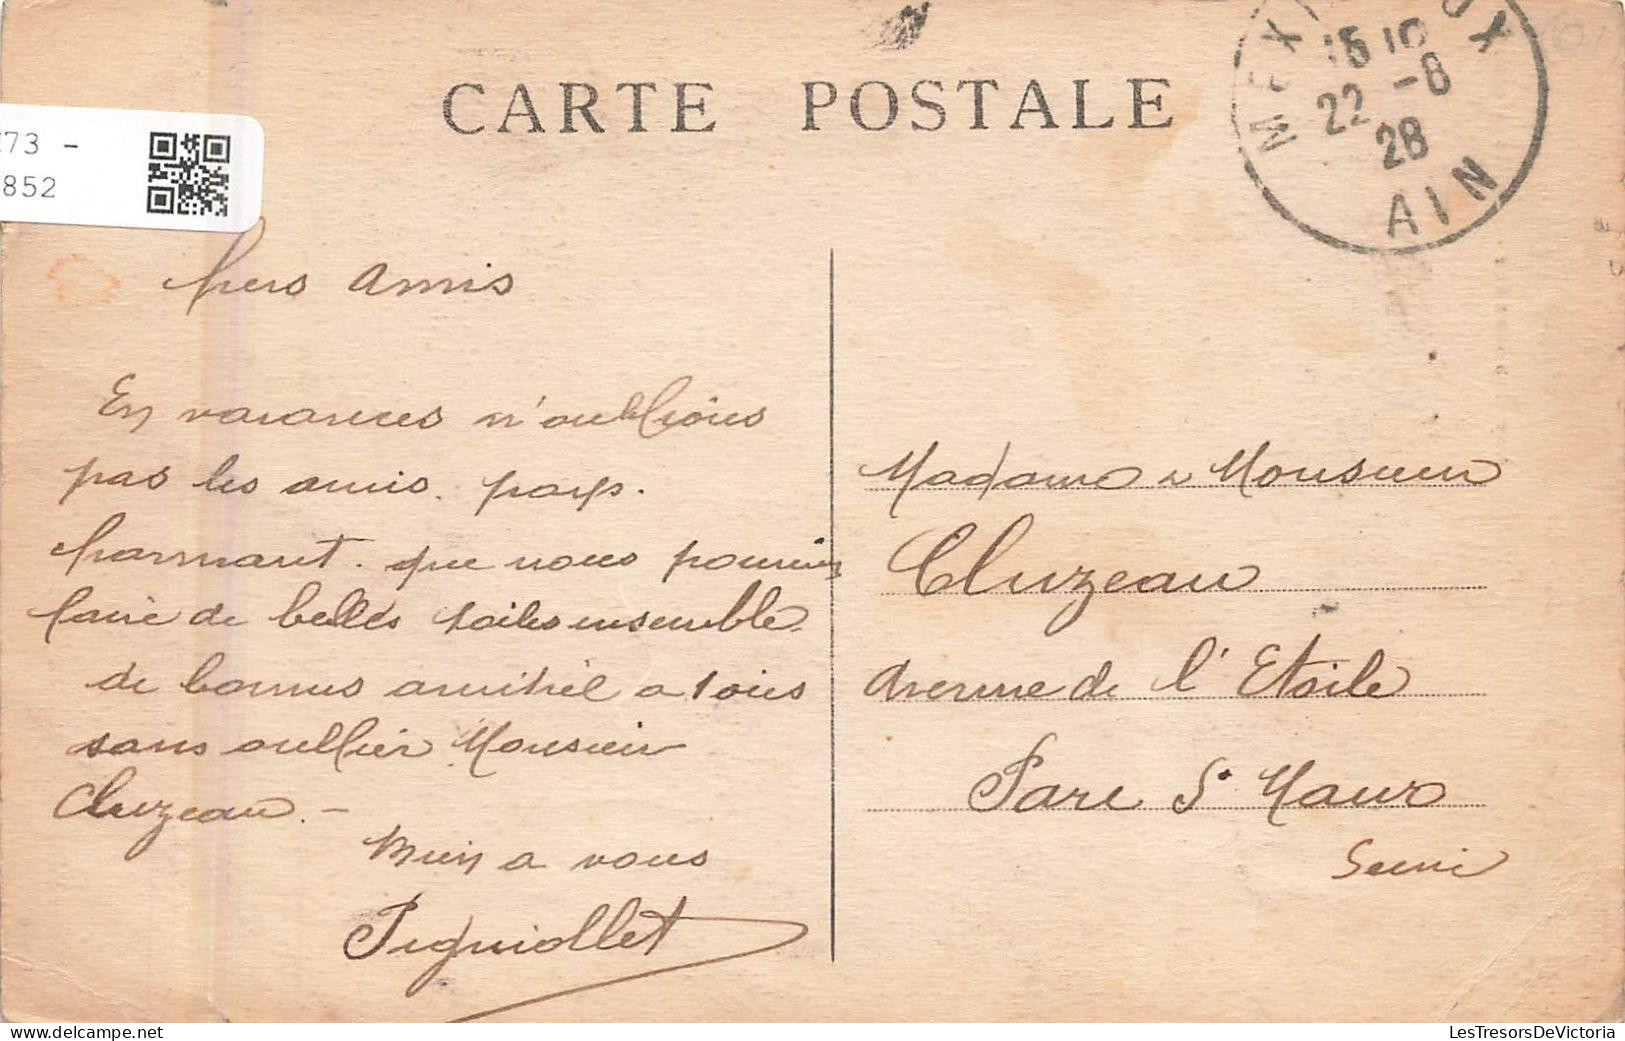 CARTE POSTALE
MEXIMIEUX
15 10
22 -8
28
AIN
173 -
852
Chers Amis
En vacances n'oublions
pas les amis. pays.
charmant. que nous pourrions
faire de belles toiles ensemble
de bonnes amitiés a tous
sans oublier Monsieur
Cluzeau. -
Bien a vous
Piguiollet
Madame & Monsieur
Cluzeau
Avenue de l'Etoile
Parc St Maur
Seine
LesTresorsDeVictoria